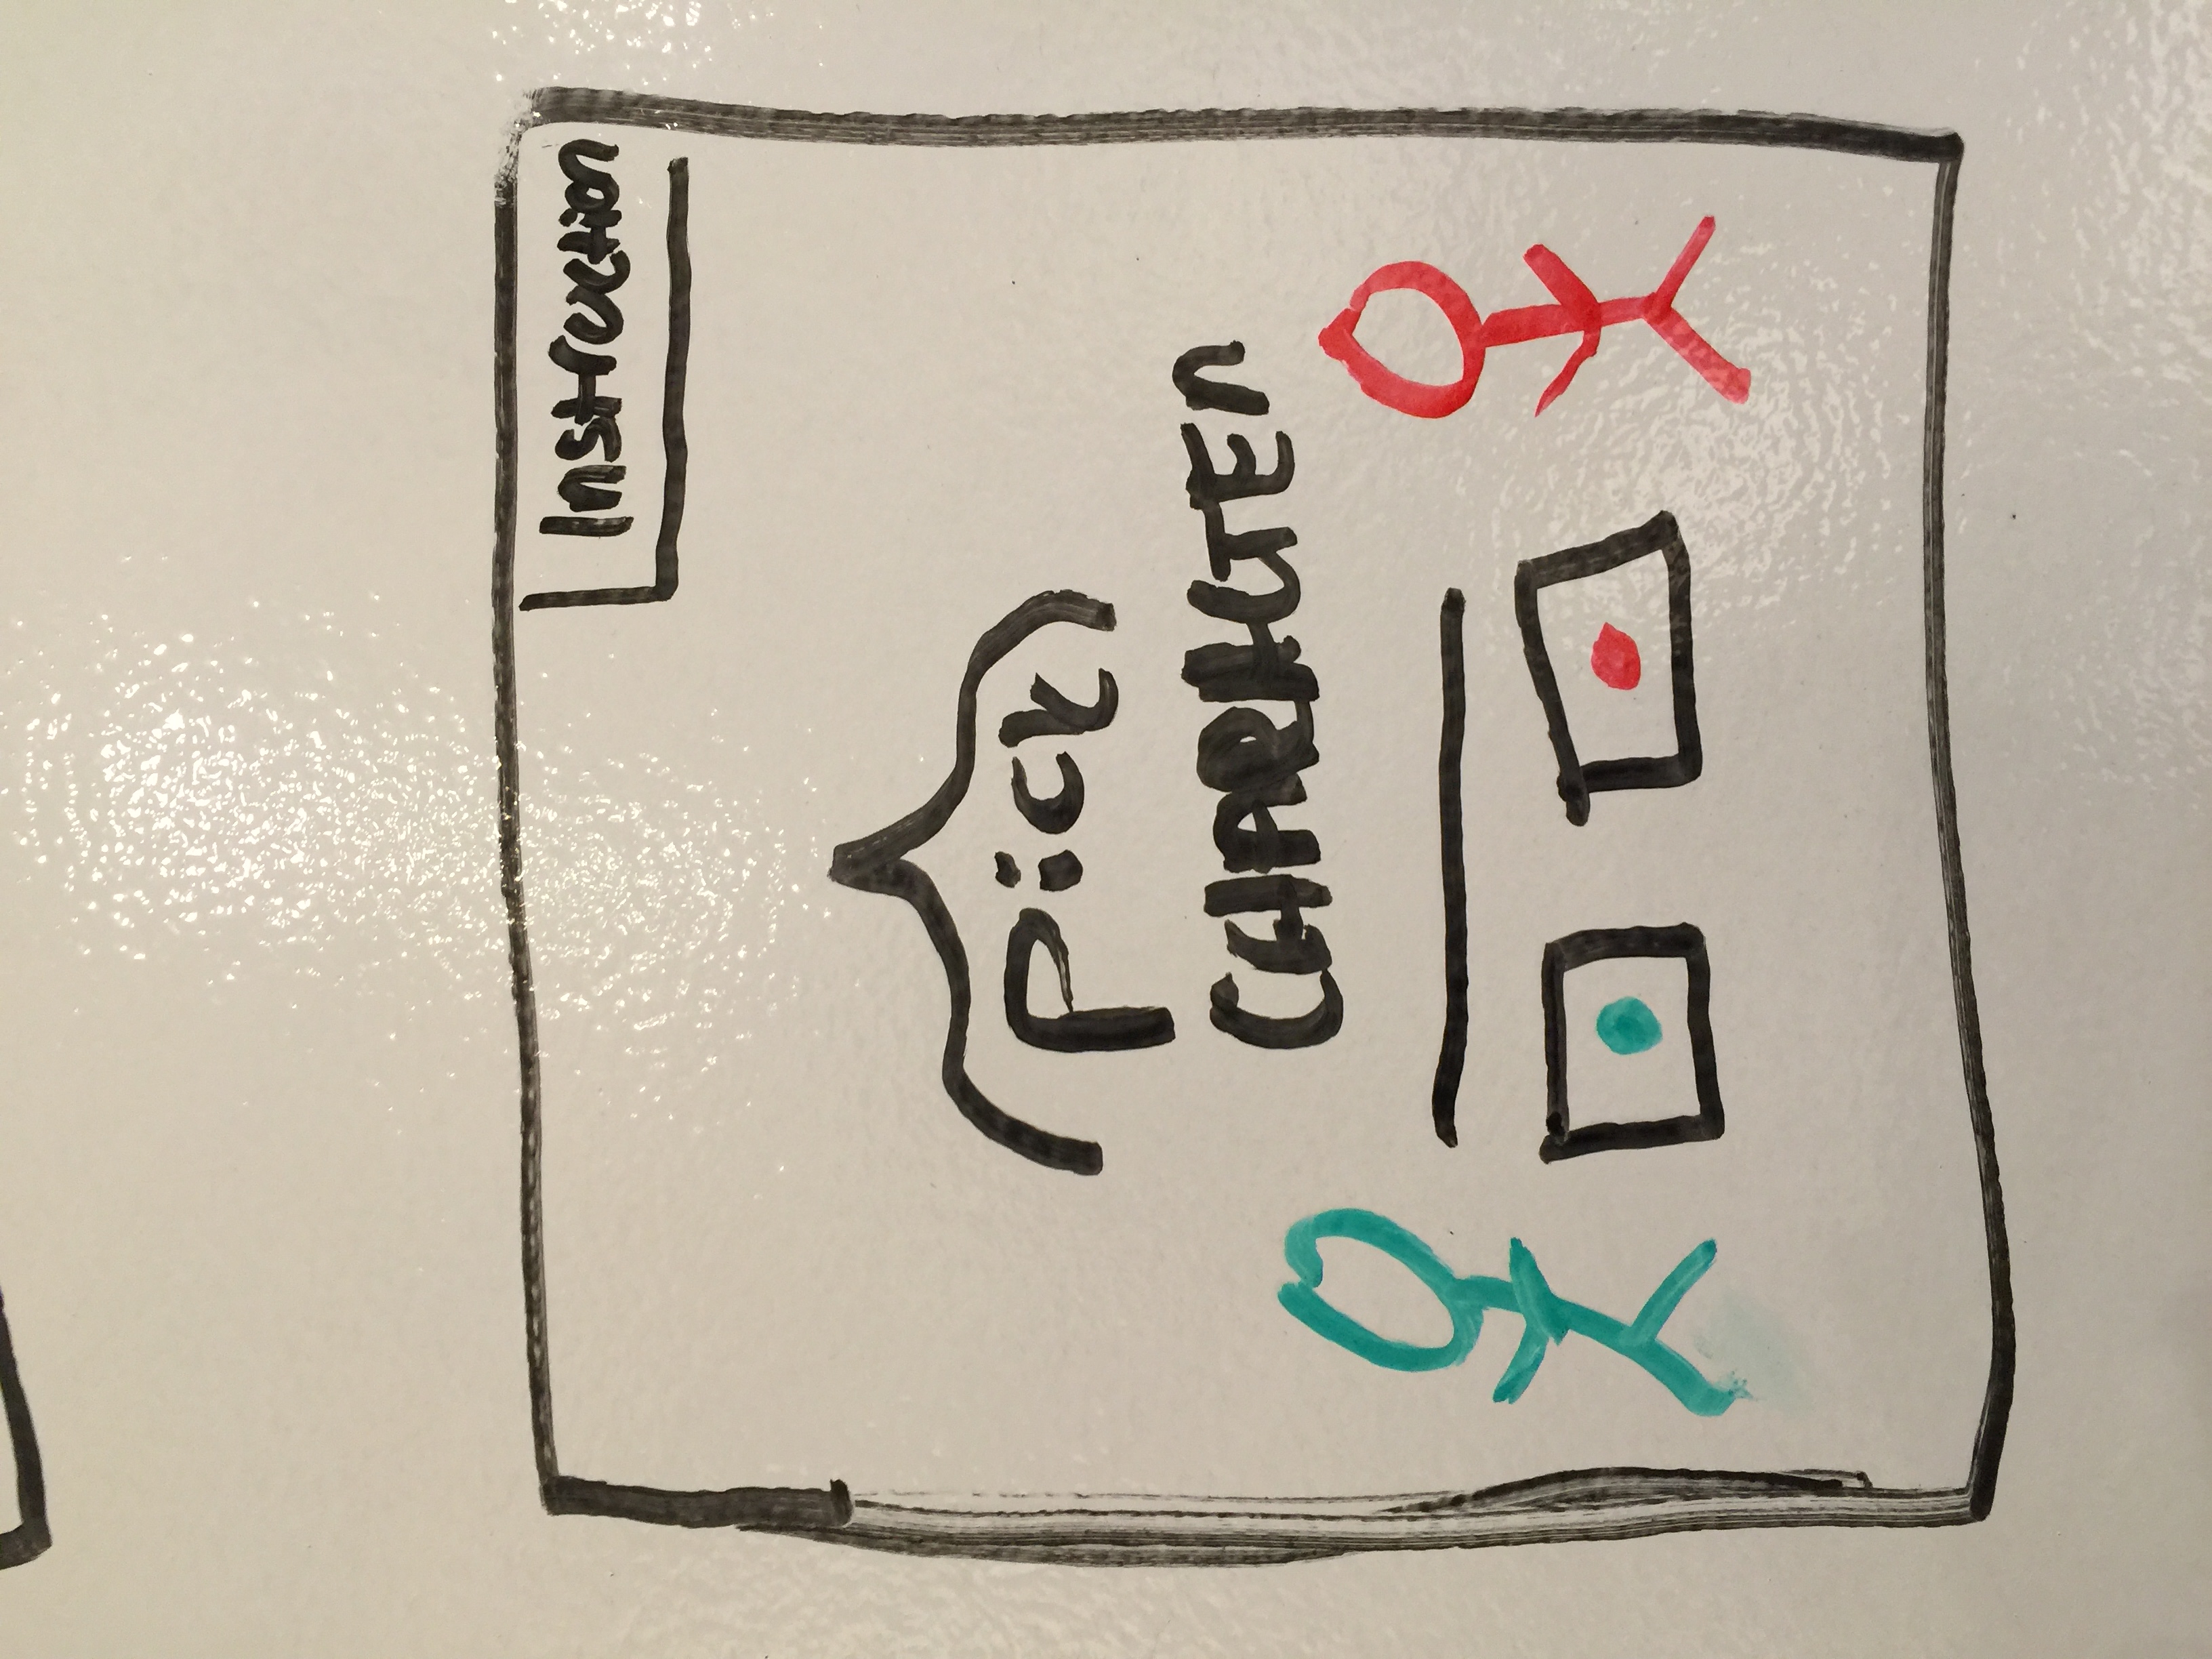 Instruction
pick
CHARACTER